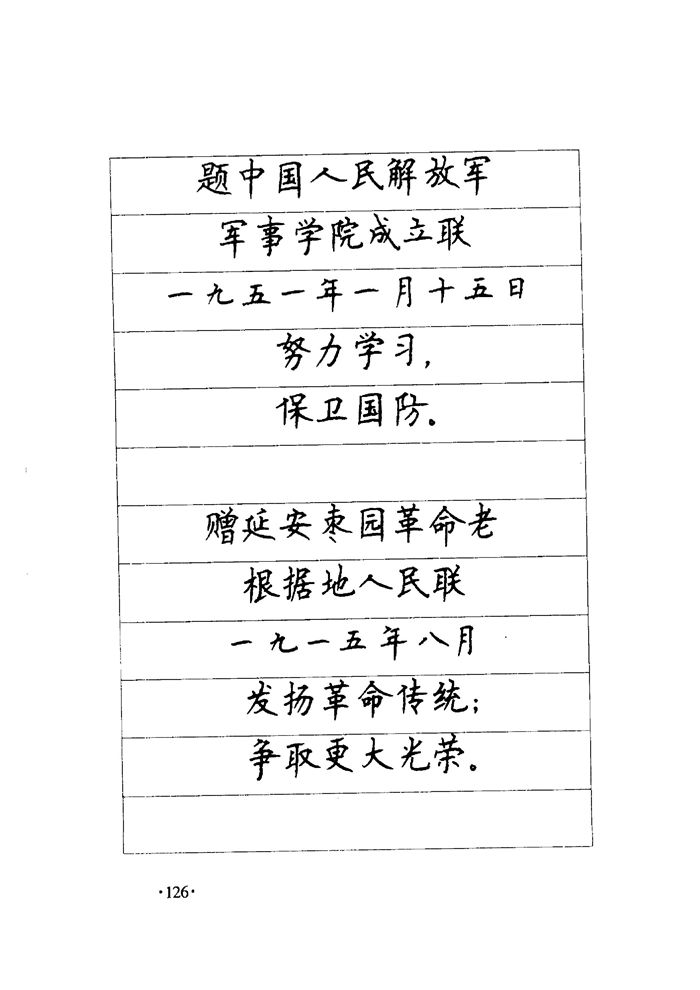 题中国人民解放军
军事学院成立联
一九五一年一月十五日
努力学习，
保卫国防。
赠延安枣园革命老
根据地人民联
一九一五年八月
发扬革命传统；
争取更大光荣。
·126·